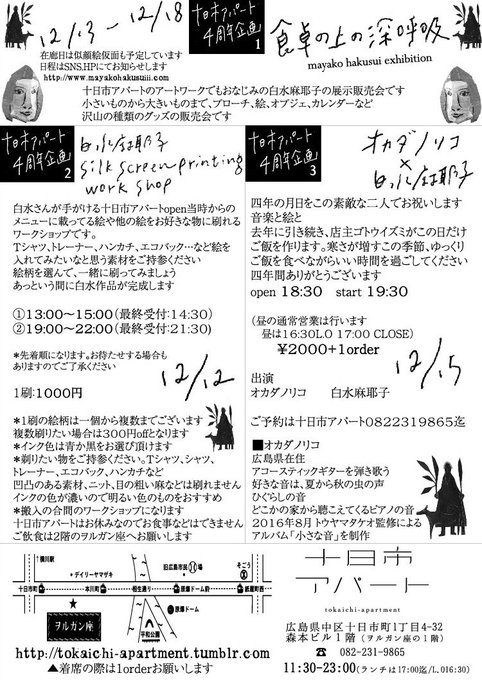 12/13 - 12/18
十日市アパート
4周年企画
1
食卓の上の深呼吸
mayako hakusui exhibition
在廊日は似顔絵仮面も予定しています
日程はSNS,HPにてお知らせします
http://www.mayakohakusuiii.com
十日市アパートのアートワークでもおなじみの白水麻耶子の展示販売会です
小さいものから大きいものまで、ブローチ、絵、オブジェ、カレンダーなど
沢山の種類のグッズの販売会です
十日市アパート
4周年企画
2
白水麻耶子
silk screen printing
work shop
白水さんが手がける十日市アパートopen当時からの
メニューに載ってる絵や他の絵をお好きな物に刷れる
ワークショップです。
Tシャツ、トレーナー、ハンカチ、エコバック…など絵を
入れてみたいなと思う素材をご持参ください
絵柄を選んで、一緒に刷ってみましょう
あっという間に白水作品が完成します
①13:00～15:00(最終受付:14:30)
②19:00～22:00(最終受付:21:30)
*先着順になります。お待たせする場合も
ありますのでご了承ください
1刷:1000円
12/12
*1刷の絵柄は一個から複数までございます
複数刷りたい場合は300円offとなります
*インク色は青か黒をお選び頂けます
*刷りたい物をご持参ください。Tシャツ、シャツ、
トレーナー、エコバック、ハンカチなど
凹凸のある素材、ニット、目の粗い麻などは刷れません
インクの色が濃いので明るい色のものをおすすめ
*搬入の合間のワークショップになります
十日市アパートはお休みなのでお食事などはできません
ご飲食は2階のヲルガン座へお願いします
十日市アパート
4周年企画
3
オカダノリコ
×
白水麻耶子
四年の月日をこの素敵な二人でお祝いします
音楽と絵と
去年に引き続き、店主ゴトウイズミがこの日だけ
ご飯を作ります。寒さが増すこの季節、ゆっくり
ご飯を食べながらいい時間を過ごしてください
四年間ありがとうございます
open 18:30 start 19:30
(昼の通常営業は行います
昼は16:30LO 17:00 CLOSE)
¥2000+1order
12/15
出演
オカダノリコ 白水麻耶子
ご予約は十日市アパート0822319865迄
■オカダノリコ
広島県在住
アコースティックギターを弾き歌う
好きな音は、夏から秋の虫の声
ひぐらしの音
どこかの家から聴こえてくるピアノの音
2016年8月 トウヤマタケオ監修による
アルバム「小さな音」を制作
横川駅
デイリーヤマザキ
旧広島市民球場
そごう
十日市町
本川町
相生通り
原爆ドーム前
紙屋町西
原爆ドーム
ヲルガン座
平和公園
http://tokaichi-apartment.tumblr.com
▲着席の際は1orderお願いします
十日市
アパート
tokaichi-apartment
広島県中区十日市町1丁目4-32
森本ビル1階(ヲルガン座の1階)
☎ 082-231-9865
11:30-23:00(ランチは17:00迄/L.O16:30)